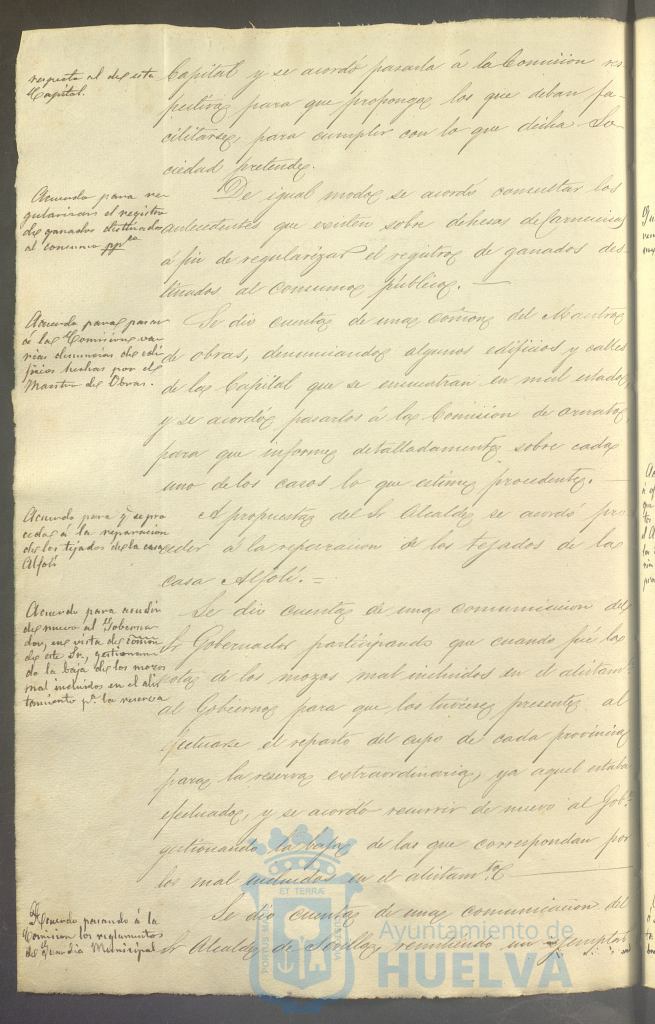 respecto al de esta
Capital.
Capital y se acordó pasarla á la Comision res
pectiva para que proponga los que deban fa-
cilitarse para cumplir con lo que dicha So-
ciedad pretende.
Acuerdo para re
gularizar el registro
de ganados destinados
al consumo ppco
De igual modo se acordó consultar los
antecedentes que existen sobre dehesas de Carnicerias
á fin de regularizar el registro de ganados des-
tinados al consumo público.
Acuerdo para pasar
á la Comision va
rias denuncias de edi
ficios hechas por el
Maestro de Obras.
Se dio cuenta de una comon del Maestro
de obras, denunciando algunos edificios y calles
de la Capital que se encuentran en mal estado
y se acordó pasarlos á la Comision de ornato
para que informe detalladamente sobre cada
uno de los casos lo que estime procedente.
Acuerdo para q se pro
ceda á la reparacion
de los tejados de la casa
Alfolí
A propuesta del Sr Alcalde se acordó pro
ceder á la reparacion de los tejados de la
casa Alfolí. =
Acuerdo para acudir
de nuevo al Sr Goberna
dor, en vista de comon
de este Sr, gestionan
do la baja de los mozos
mal incluidos en el alis
tamiento pa la reserva
Se dio cuenta de una comunicacion del
Sr Gobernador participando que cuando fué la
nota de los mozos mal incluidos en el alistamto
al Gobierno para que los tuviese presente al
efectuarse el reparto del cupo de cada provincia
para la reserva extraordinaria, ya aquel estaba
efectuado, y se acordó recurrir de nuevo al Gobo
gestionando la baja de los que correspondan por
los mal incluidos en el alistamto
Acuerdo pasando á la
Comision los reglamentos
de Guardia Municipal
Se dio cuenta de una comunicacion del
Sr Alcalde de Sevilla remitiendo un ejemplar
ET TERRÆ
Ayuntamiento de
HUELVA